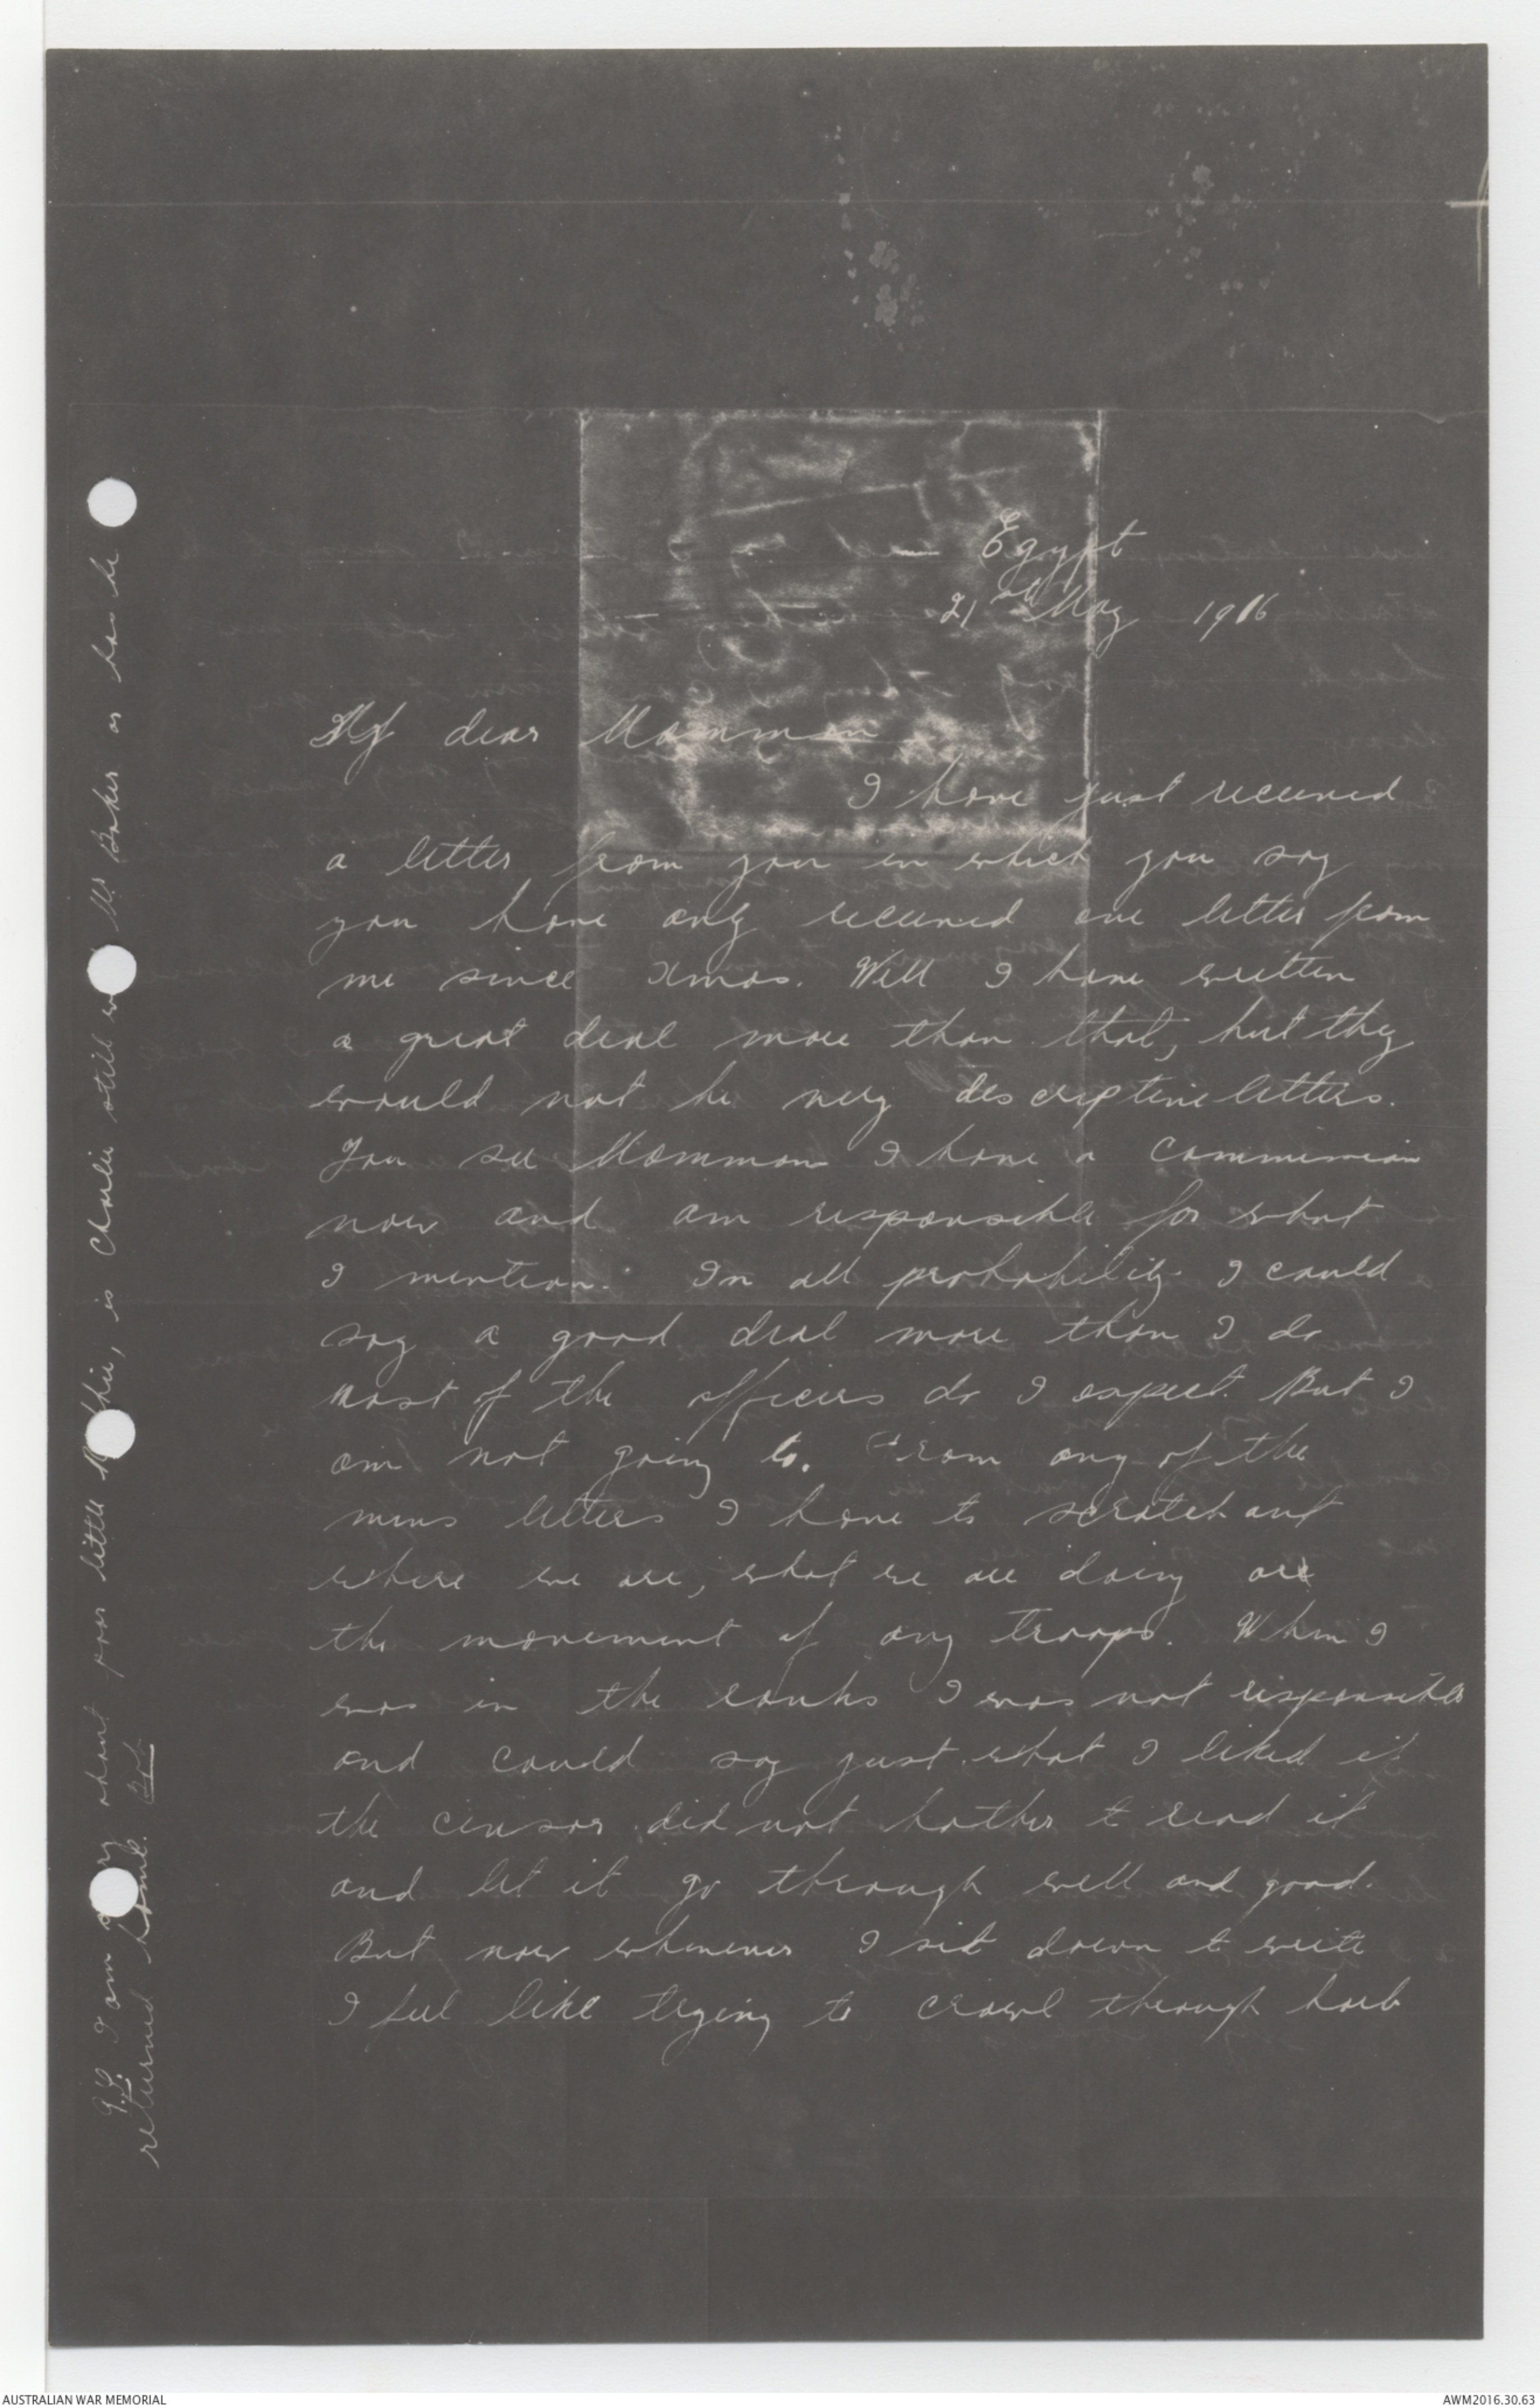 Egypt
21st May 1916
My dear Mamman
I have just received
a letter from you in which you say
you have only received one letter from
me since Xmas. Well I have written
a great deal more than that, but they
would not be very descriptive letters.
You see Mamman I have a Commission
now and am responsible for what
I mention. In all probability I could
say a good deal more than I do
most of the officers do I expect. But I
am not going to. From any of the
mens letters I have to scratch out
where we are, what we are doing and
the movement of any troops. When I
was in the ranks I was not responsible
and could say just what I liked if
the censor did not bother to read it
and let it go through well and good.
But now whenever I sit down to write
I feel like trying to crawl through barb
P.S. I am about poor little is Charlie still Mr Baker or has he
returned home.
AUSTRALIAN WAR MEMORIAL
AWM2016.30.63